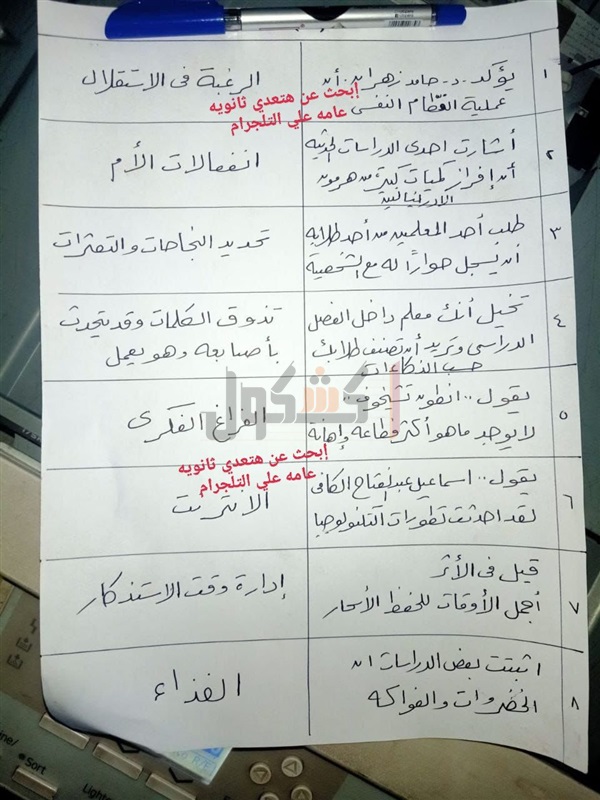 ١
يؤكد .د. حامد زهران : أن
عملية الفطام النفسي
الرغبة فى الاستقلال
إبحث عن هتعدي ثانويه
عامه علي التلجرام
٢
أشارت احدى الدراسات الحديثه
أن إفراز كميات كبيرة من هرمون
الادرينالين
انفعالات الأم
٣
طلب أحد المعلمين من أحد طلابه
أن يسجل حواراً له مع الشخصية
تحديد النجاحات والتعثرات
٤
تخيل أنك معلم داخل الفصل
الدراسى وتريد أن تصنف طلابك
حسب الذكاءات
تذوق الكلمات وقد يتحدث
بأصابعه وهو يعمل
كشكول
٥
يقول .. انطون تشيخوف ..
لا يوجد ما هو أكثر فظاعه وإهانة
الفراغ الفكرى
إبحث عن هتعدي ثانويه
عامه علي التلجرام
٦
يقول .. اسماعيل عبد الفتاح الكافى
لقد احدثت تطورات التكنولوجيا
الانترنت
٧
قيل فى الأثر
أجمل الأوقات للحفظ الأسحار
إدارة وقت الاستذكار
٨
اثبتت بعض الدراسات ان
الخضروات والفواكه
الغذاء
Sort